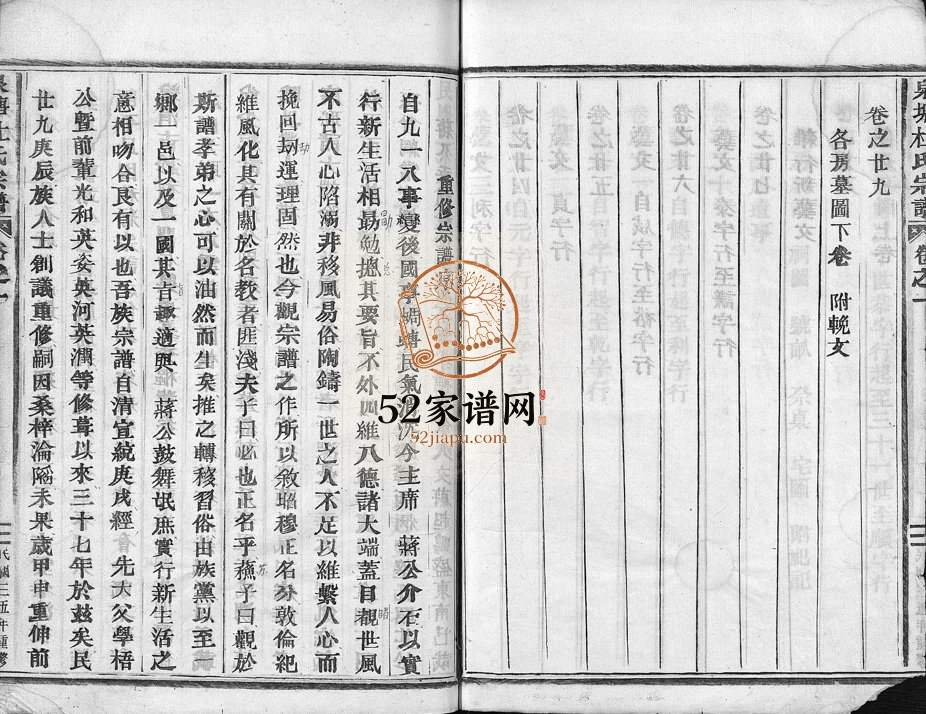 卷之廿九
各房墓圖下卷　附輓文
重修宗譜
自九一八事變後國事蜩螗民氣　今主席　蔣公介石以實
行新生活相勗勉揔其要旨不外四維八德諸大端蓋目覩世風
不古人心陷溺非移風易俗陶鑄一世之人不足以維繫人心而
挽回刼運理固然也今觀宗譜之作所以敘昭穆正名分敦倫紀
維風化其有關於名教者匪淺夫子曰必也正名乎蘓子曰觀於
斯譜孝弟之心可以油然而生矣推之轉移習俗由族黨以至一
鄉一邑以及一國其旨趣適與　蔣公鼓舞氓庶實行新生活之
意相吻合良有以也吾族宗譜自清宣統庚戌經　先大父學梧
公暨前輩光和英妥英河英澗等修葺以來三十七年於茲矣民
廿九庚辰族人士創議重修嗣因桑梓淪陷未果歲甲申重伸前
泉塘杜氏宗譜
卷之一
民國三五年重
52家谱网
52jiapu.com